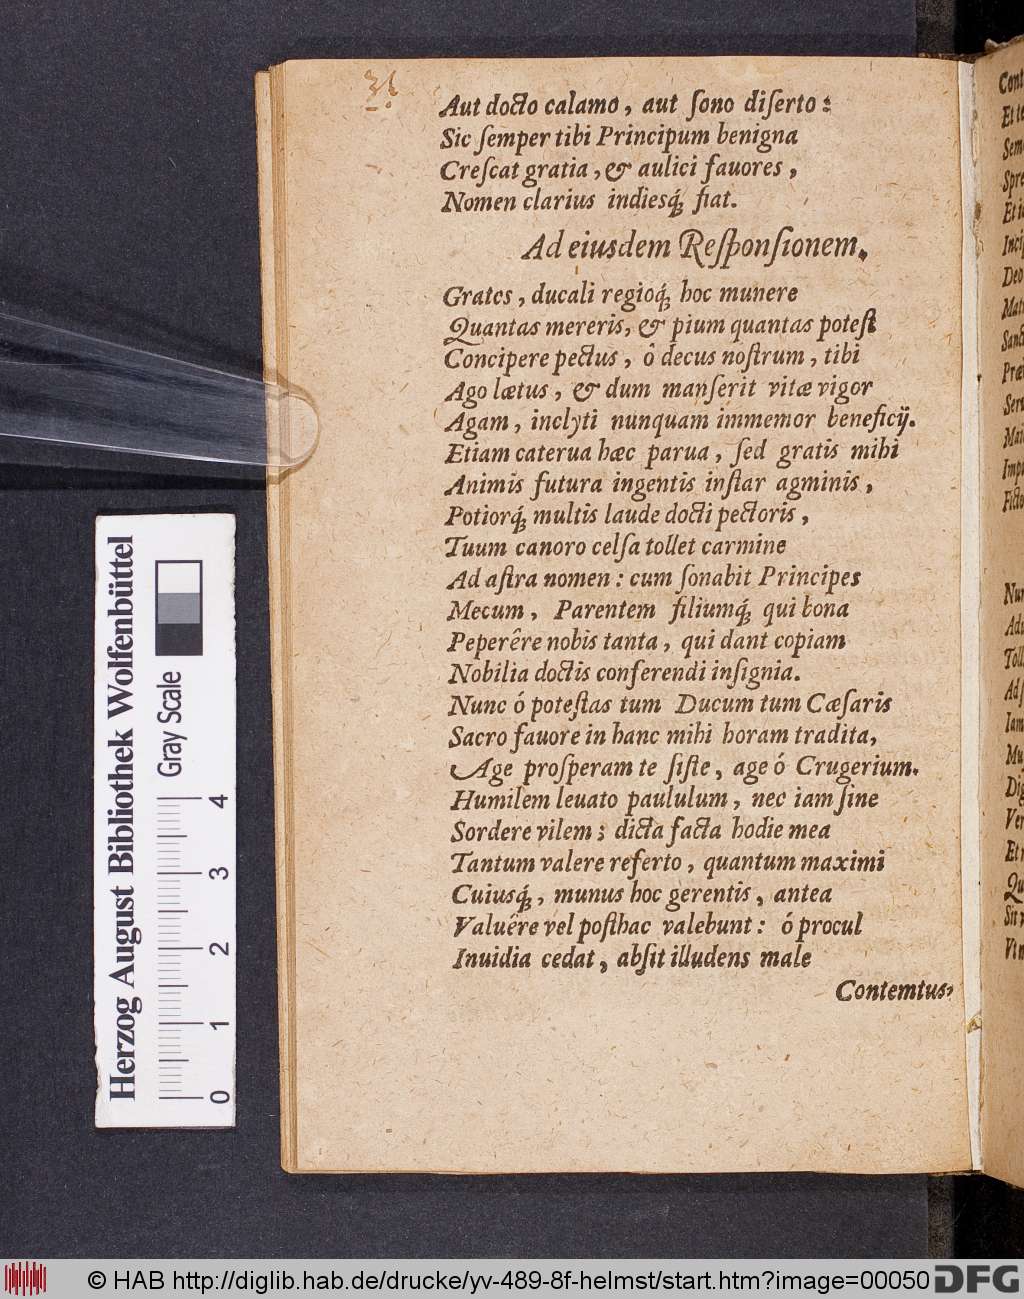 Aut docto calamo, aut ſono diſerto:
Sic ſemper tibi Principum benigna
Creſcat gratia, & aulici fauores,
Nomen clarius indiesq́; fiat.
Ad eiusdem Reſponſionem.
Grates, ducali regioq́; hoc munere
Quantas mereris, & pium quantas poteſt
Concipere pectus, ô decus noſtrum, tibi
Ago lætus, & dum manſerit vitæ vigor
Agam, inclyti nunquam immemor beneficij.
Etiam caterua hæc parua, ſed gratis mihi
Animis futura ingentis inſtar agminis,
Potiorq́; multis laude docti pectoris,
Tuum canoro celſa tollet carmine
Ad aſtra nomen: cum ſonabit Principes
Mecum, Parentem filiumq́; qui bona
Peperêre nobis tanta, qui dant copiam
Nobilia doctis conferendi inſignia.
Nunc ó poteſtas tum Ducum tum Cæſaris
Sacro fauore in hanc mihi horam tradita,
Age proſperam te ſiſte, age ó Crugerium.
Humilem leuato paululum, nec iam ſine
Sordere vilem; dicta facta hodie mea
Tantum valere referto, quantum maximi
Cuiusq́;, munus hoc gerentis, antea
Valuêre vel poſthac valebunt: ó procul
Inuidia cedat, abſit illudens male
Contemtus,
Herzog August Bibliothek Wolfenbüttel
Gray Scale
0 1 2 3 4
© HAB http://diglib.hab.de/drucke/yv-489-8f-helmst/start.htm?image=00050
DFG